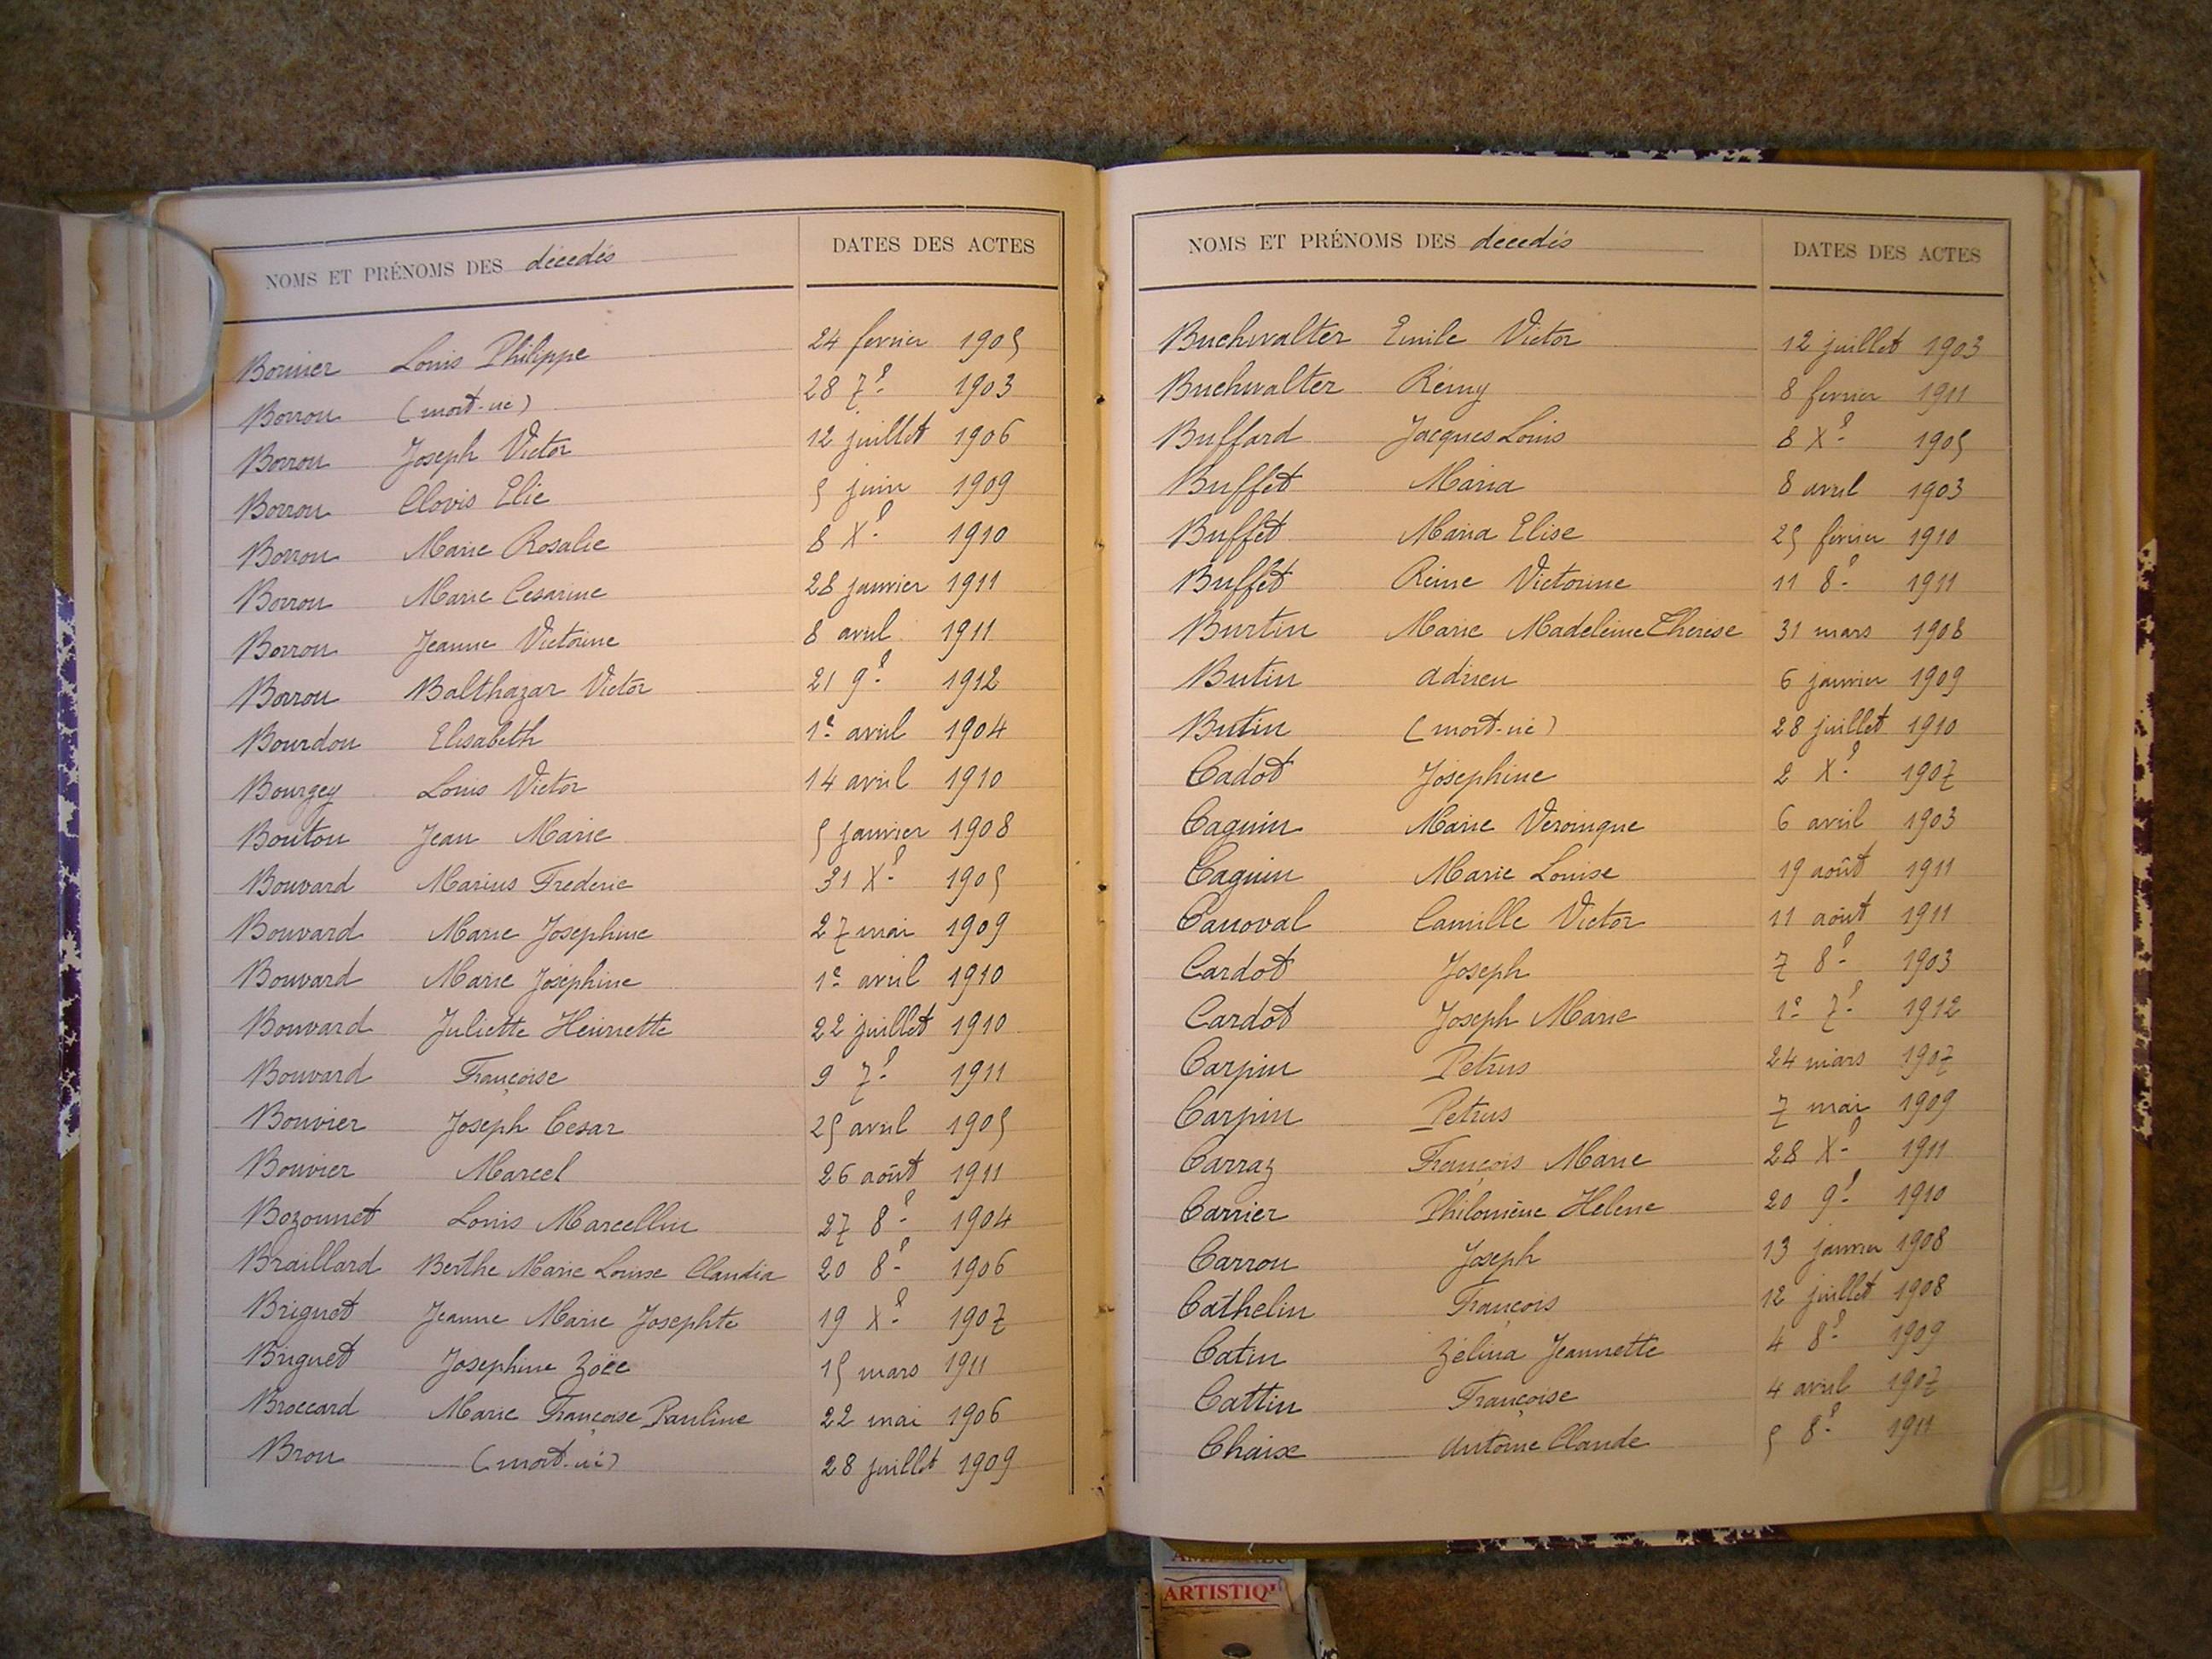 NOMS ET PRÉNOMS DES décedés DATES DES ACTES
Bornier Louis Philippe 24 fevrier 1905
Borron (mort-né) 28 7e 1903
Borron Joseph Victor 12 juillet 1906
Borron Clovis Elie 5 juin 1909
Borron Marie Rosalie 8 Xe 1910
Borron Marie Cesarine 28 janvier 1911
Borron Jeanne Victorine 8 avril 1911
Borron Balthazar Victor 21 9e 1912
Bourdon Elisabeth 1e avril 1904
Bourgey Louis Victor 14 avril 1910
Bouton Jean Marie 5 janvier 1908
Bouvard Marius Frederic 31 Xe 1905
Bouvard Marie Josephine 27 mai 1909
Bouvard Marie Joséphine 1e avril 1910
Bouvard Juliette Henriette 22 juillet 1910
Bouvard Françoise 9 7e 1911
Bouvier Joseph César 25 avril 1905
Bouvier Marcel 26 août 1911
Bozonnet Louis Marcellin 27 8e 1904
Braillard Berthe Marie Louise Claudia 20 8e 1906
Briguet Jeanne Marie Josephte 19 Xe 1907
Briguet Josephine Zoëe 15 mars 1911
Broccard Marie Françoise Pauline 22 mai 1906
Bron (mort-né) 28 juillet 1909
NOMS ET PRÉNOMS DES decedés DATES DES ACTES
Buchwalter Emile Victor 12 juillet 1903
Buchwalter Rémy 8 fevrier 1911
Buffard Jacques Louis 8 Xe 1905
Buffet Maria 8 avril 1903
Buffet Maria Elise 25 février 1910
Buffet Reine Victorine 11 8e 1911
Burtin Marie Madeleine Therese 31 mars 1908
Butin adrien 6 janvier 1909
Butin (mort-né) 28 juillet 1910
Cadot Josephine 2 Xe 1907
Caguin Marie Veronique 6 avril 1903
Caguin Marie Louise 19 août 1911
Canoval Camille Victor 11 août 1911
Cardot Joseph 7 8e 1903
Cardot Joseph Marie 1e 7e 1912
Carpin Petrus 24 mars 1907
Carpin Petrus 7 mai 1909
Carraz François Marie 28 Xe 1911
Carrier Philomène Helene 20 9e 1910
Carron Joseph 13 janvier 1908
Cathelin François 12 juillet 1908
Catin Zélina Jeannette 4 8e 1909
Cattin Françoise 4 avril 1907
Chaix Antoine Claude 5 8e 1911
ARTISTIQ